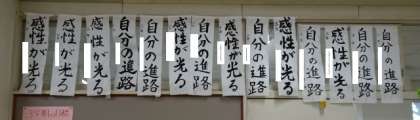 感性が光る
感性が光る
感性が光る
自分の進路
感性が光る
自分の進路
感性が光る
自分の進路
感性が光る
自分の進路
感性が光る
自分の進路
自分の進路